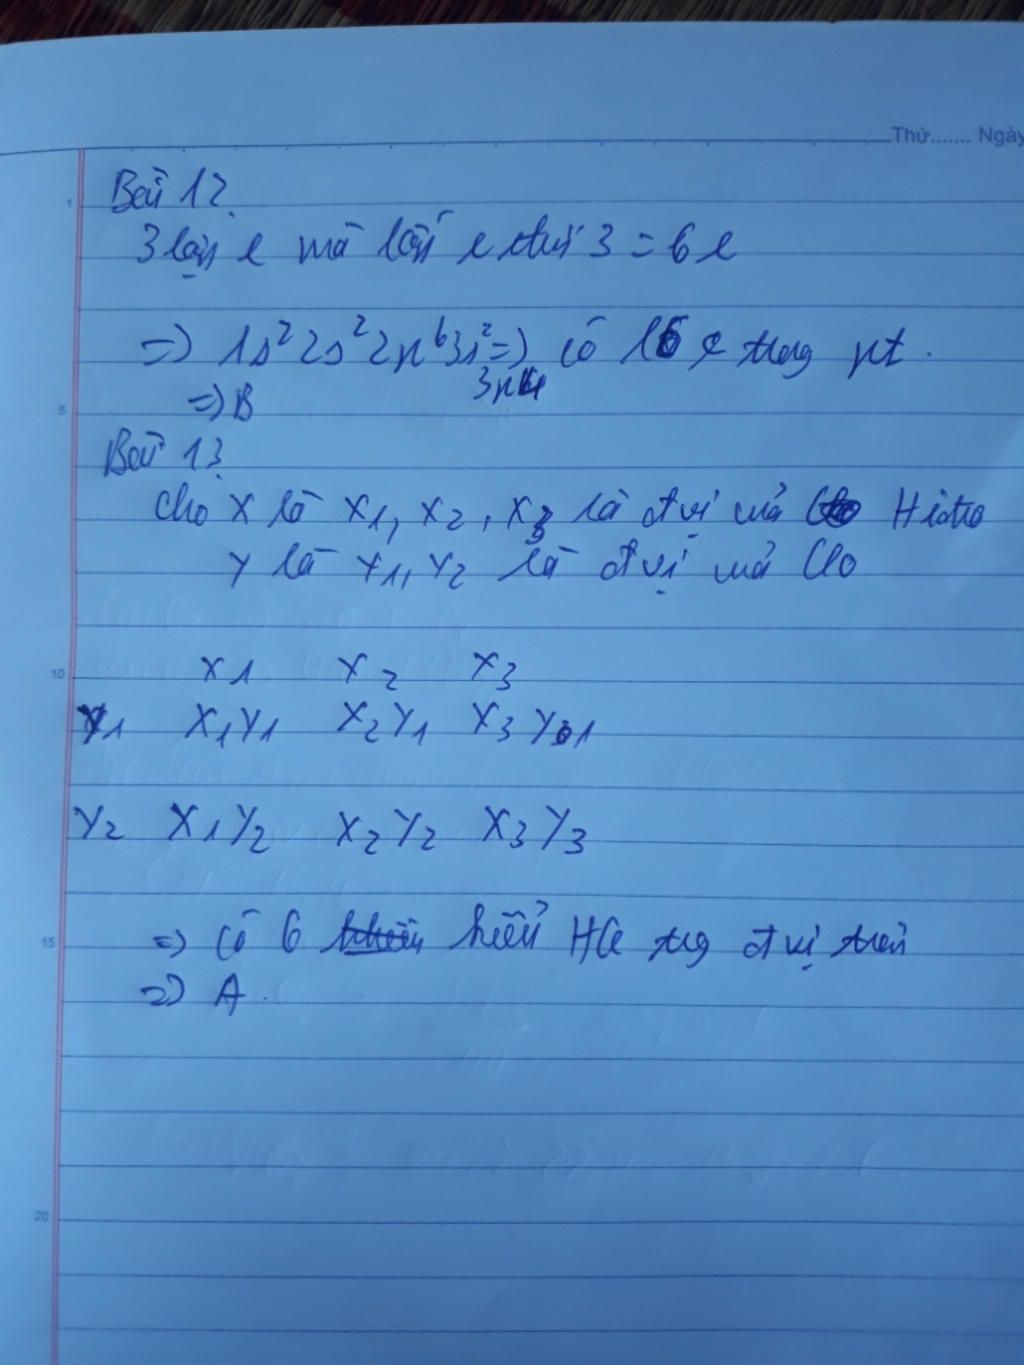 Thứ....... Ngày
1
Bài 12.
3 lớp e mà lớp e thứ 3 = 6e
=> 1s² 2s² 2p⁶ 3s² => có 16 e trong nt.
3p⁴
=> B
5
Bài 13.
Cho X là X1, X2, X3 là đ vị của Hidro
Y là Y1, Y2 là đ vị của Clo
10
X1 X2 X3
Y1 X1Y1 X2Y1 X3Y1
Y2 X1Y2 X2Y2 X3Y3
15
=> Có 6 kiểu HCl tg đ vị trên
=> A.
20